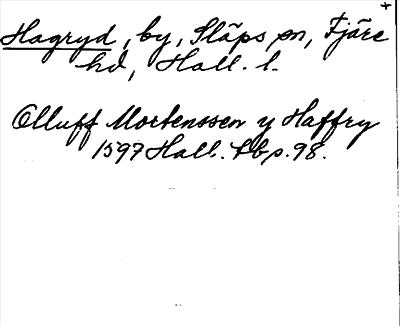 Hagryd, by, Släps sn, Fjäre
hd, Hall. l.
Olluff Mortenssen y Haffry
1597 Hall. Tbp. 98.